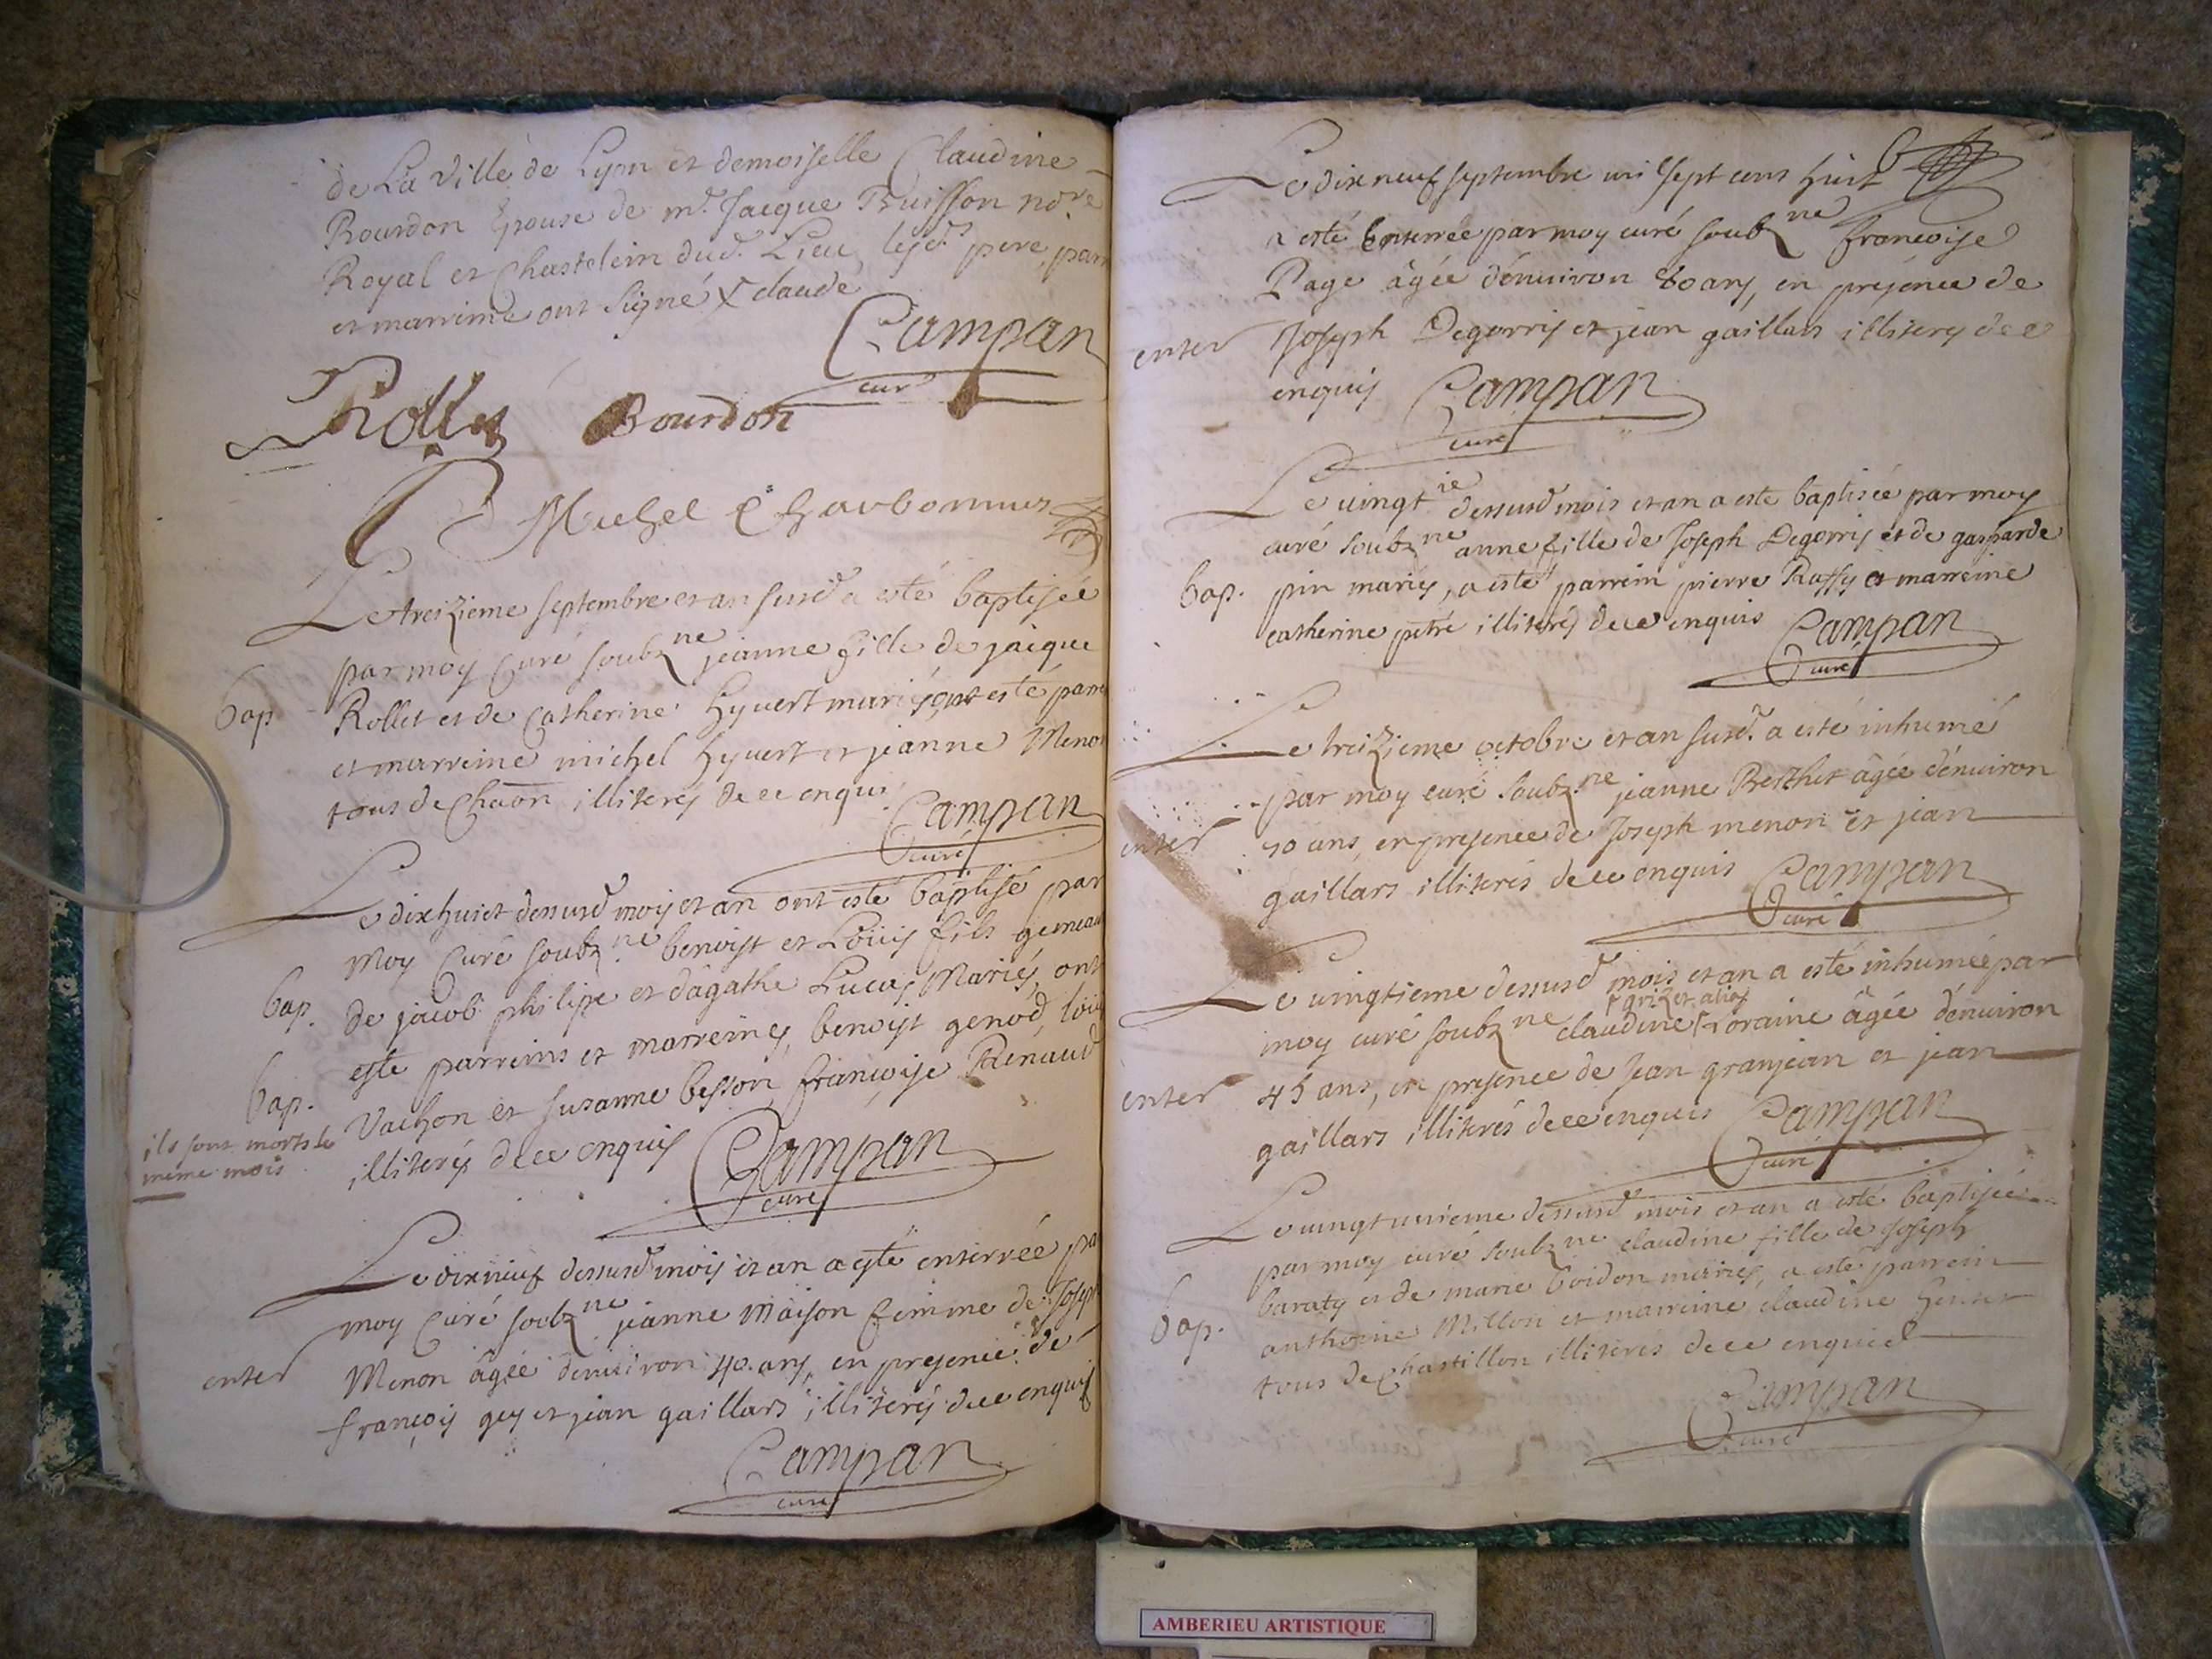 de La Ville de Lyon et demoiselle Claudine
Bourdon Epouse de mr. Jacque Truisson nore
Royal et Chastelein dud. Lieu lesd.s pere, parr
et marreine ont signé X claude
Campan
curé
Rollet Bourdon
Michel Charbonnus
Le treizieme septembre et an susd. a esté baptisée
par moy Curé soubzne jeanne fille de jaique
bap. Rollet et de Catherine hyvert mariés, ont esté parr
et marreine michel hyvert et jeanne Menon
tous de Chaon illiterés de ce enquis
Campan
curé
Le dix huict dessusd. moys et an ont esté baptisé par
moy Curé soubzne benoist et Loüis fils gemeau
bap. de jacob philippe et d'agathe Lucas Mariés, ont
este parreins et marreines, benoist genod, loüis
bap. Vachon et susanne besson, françoise Renaud
ils sont morts le
même mois
illiterés de ce enquis
Campan
curé
Le dixneuf dessusd. mois et an a esté enterrée par
moy Curé soubzne jeanne Maison femme de Joseph
enter Menon âgée d'environ 40. ans, en presence de
françois gey et jean gaillard illiterés de ce enquis
Campan
curé
Le dix neuf septembre mil sept cens huit
a esté Enterrée par moy curé soubzne françoise
Page âgée d'environ 80 ans, en présence de
enter Joseph Degorris et jean gaillars illiterés de ce
enquis Campan
curé
Le vingtie dessusd. mois et an a esté baptisée par moy
curé soubzne anne fille de Joseph Degorris et de gasparde
bap. pin mariés, a esté parrein pierre Ruffy et marreine
catherine pétré illiterés de ce enquis Campan
curé
Le treizieme octobre et an susd. a esté inhumé
par moy curé soubz.ne jeanne Berthet âgée d'environ
enter 70 ans, en presence de Joseph menon et jean
gaillars illiterés de ce enquis Campan
curé
Le vingtieme dessusd. mois et an a esté inhumée par
grizet alias
moy curé soubzne claudine Loraine âgée d'environ
enter 45 ans, en presence de jean granjean et jean
gaillars illiterés de ce enquis Campan
curé
Le vingt unieme dessusd. mois et an a esté baptisée
par moy curé soubzne claudine fille de Joseph
baraty et de marie boidon mariés, a esté parrein
bap. anthoine Millon et marreine claudine
tous de chastillon illiterés de ce enquis
Campan
curé
AMBERIEU ARTISTIQUE